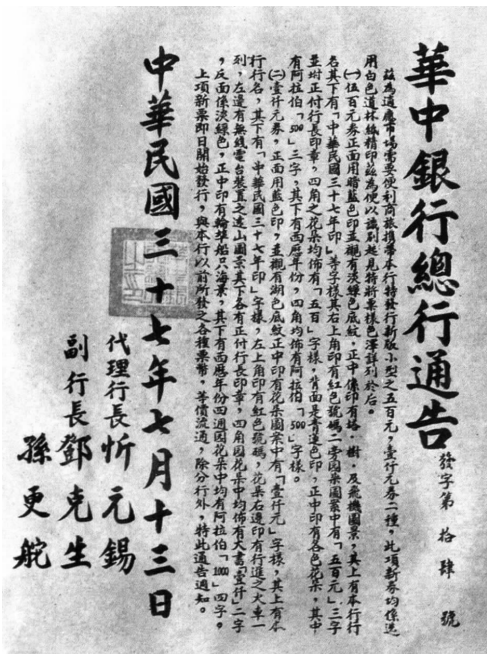 華中銀行總行通告
發字第拾肆號
茲為適應市場需要便利商旅攜帶本行特發行新版小型之五百元，壹仟元券二種，此項新券均係選
用白色道林紙精印茲為便以識別起見特將票樣色澤詳列於后。
㈠伍百元券正面用暗藍色印並襯有淡綠色底紋，正中係印有塔，樹，及飛機圖景，其上有本行行
名其下有「中華民國三十七年印」等字樣其右上角印有紅色號碼二旁圖案圖案中有「五百元」三字
並坿正付行長印章，四角之花朵均佈有「五百」字樣，背面是青蓮色印，正中印有各色花朵，其中
有阿拉伯「500」三字，其下有西歷年份，四角均佈有阿拉伯「500」字樣。
㈡壹仟元券，正面用藍色印，並襯有湖色底紋正中印有花朵圖案中有「壹仟元」字樣，其上有本
行行名，其下有「中華民國三十七年印」字樣，左上角印有紅色號碼，花朵右邊印有行進之火車一
列，左邊有無綫電台裝置之遠山圖景其下各有正付行長印章，四角圓花朵中均佈有大書「壹仟」二字
，反面係淡綠色，正中印有輪埠船只海景，其下有西歷年份四週圓花朵中均有阿拉伯「1000」四字。
上項新票即日開始發行，與本行以前所發之各種票幣，等價流通，除分行外，特此通告週知。
代理行長忻元錫
副行長鄧克生
孫更舵
中華民國三十七年七月十三日